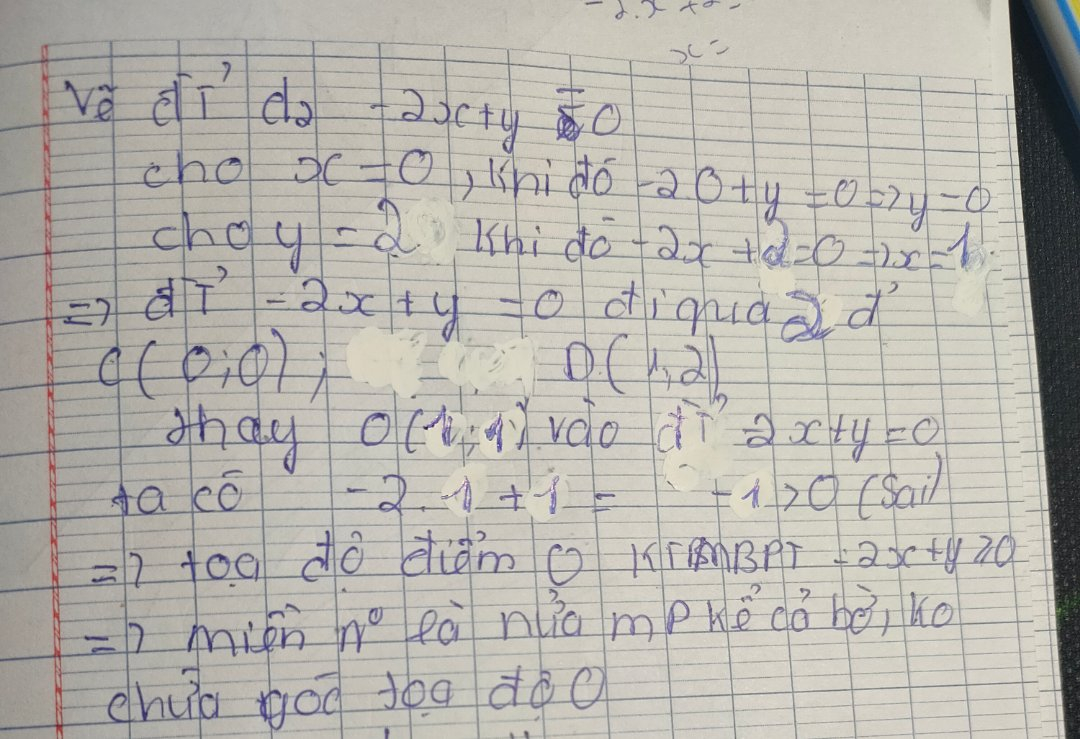 -2.x +2=
x=
Vẽ đT' d2 -2x+y = 0
cho x=0, khi đó -2 0+y=0=>y=0
cho y=2 khi đó -2x+2=0=>x=1
=> đT' -2x+y=0 đi qua 2 đ'
C(0;0); D(1;2)
thay O(1;1) vào đT' -2x+y=0
ta có -2.1+1= -1>0 (Sai)
=> tọa độ điểm O KTMBPT -2x+y≥0
=> miền n° là nửa mp kể cả bờ, ko
chứa gốc tọa độ O